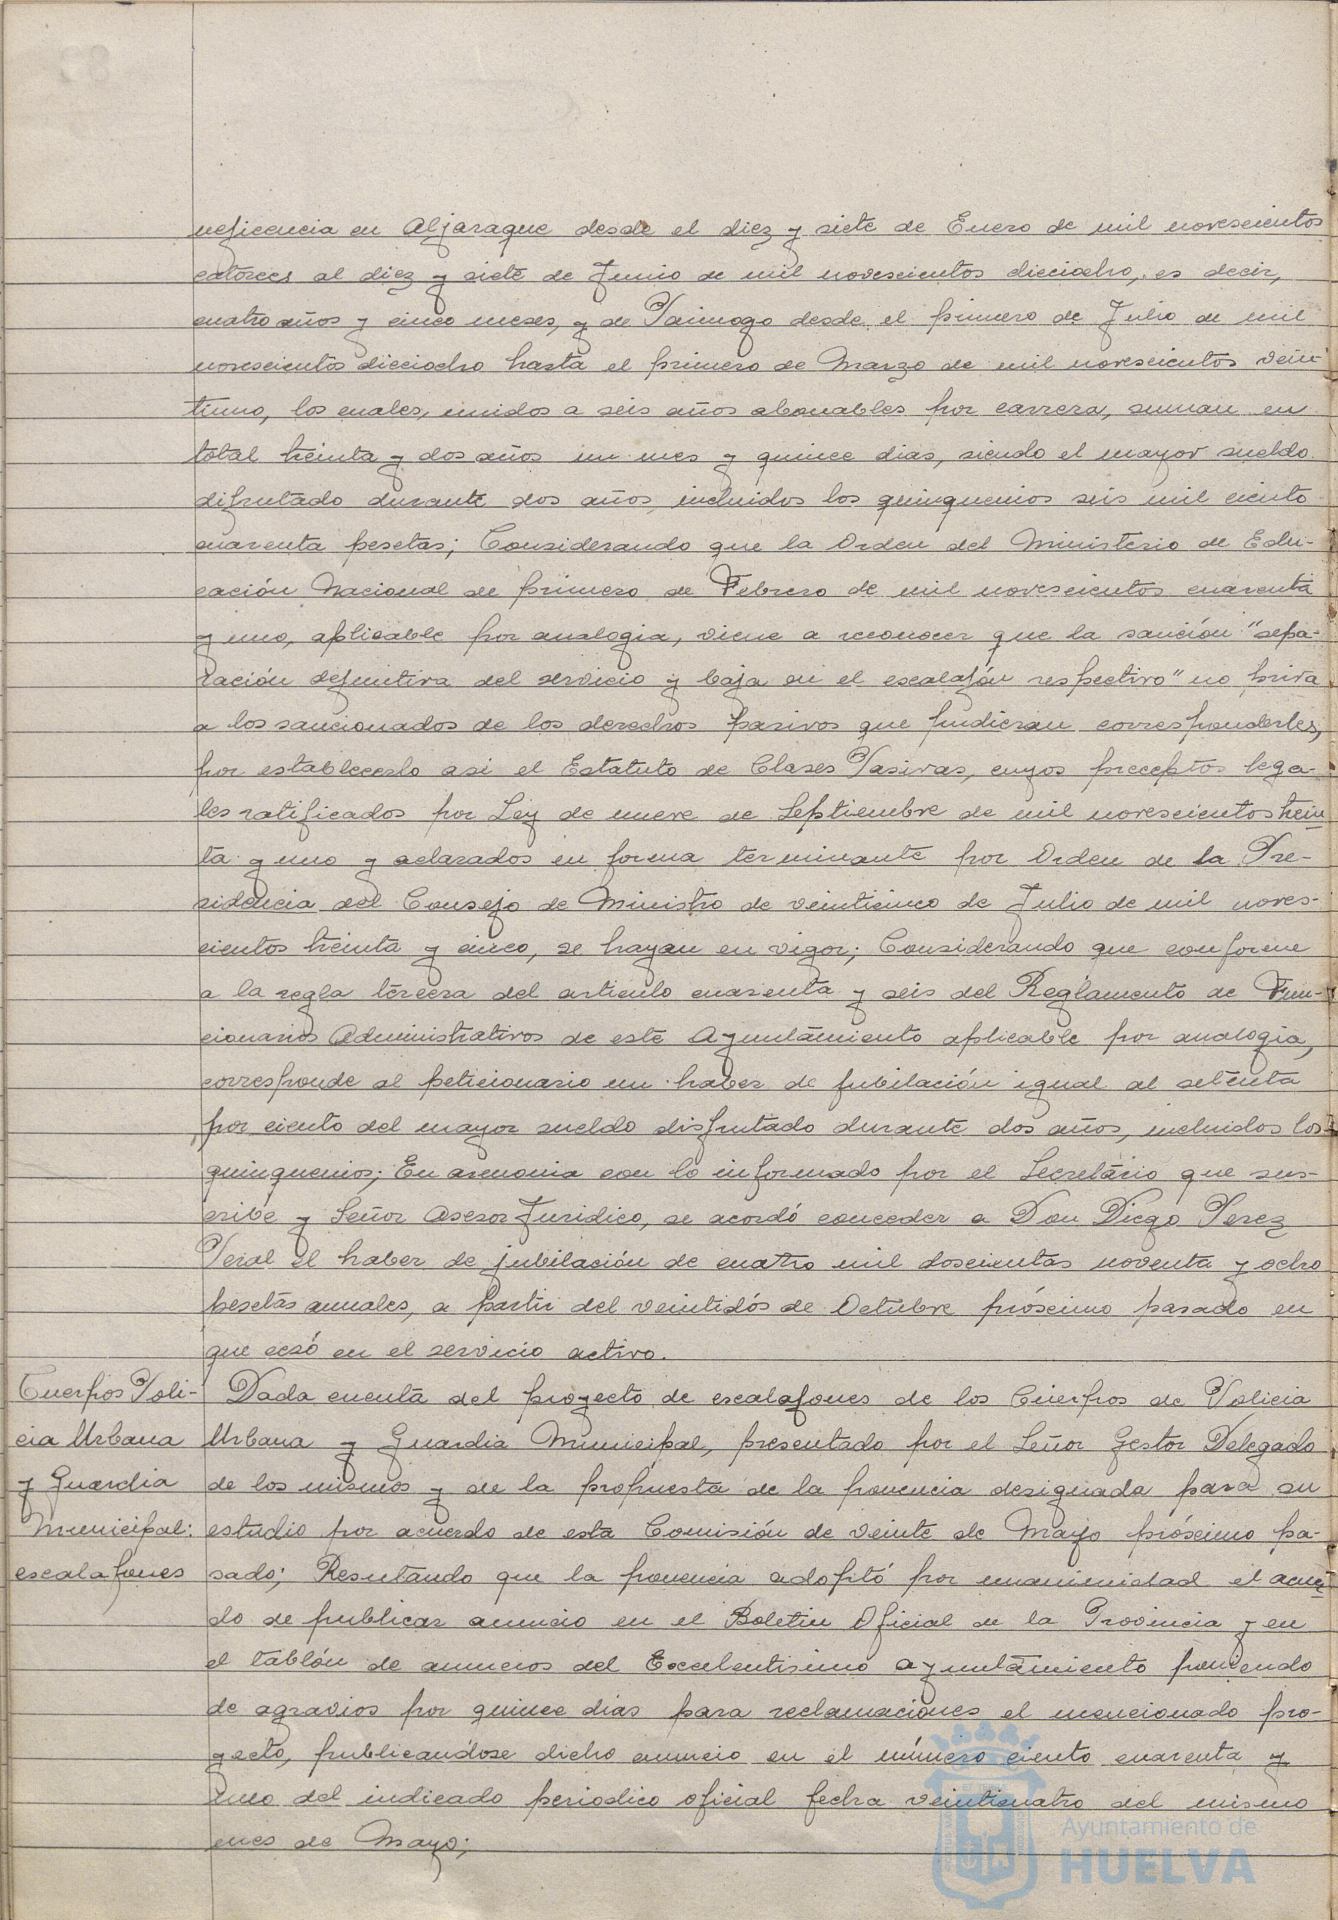 neficencia en Aljaraque desde el diez y siete de Enero de mil novescientos
catorces al diez y siete de Junio de mil novescientos dieciocho, es decir,
cuatro años y cinco meses, y de Paimogo desde el primero de Julio de mil
novescientos dieciocho hasta el primero de Marzo de mil novescientos vein-
tiuno, los cuales, unidos a seis años abonables por carrera, suman en
total treinta y dos años un mes y quince dias, siendo el mayor sueldo
difrutado durante dos años, incluidos los quinquenios seis mil ciento
cuarenta pesetas; Considerando que la Orden del Ministerio de Edu-
cación Nacional de primero de Febrero de mil novescientos cuarenta
y uno, aplicable por analogia, viene a reconocer que la sanción "sepa-
ración definitiva del servicio y baja en el escalafón respectivo" no priva
a los sancionados de los derechos pasivos que pudieran corresponderles,
por establecerlo asi el Estatuto de Clases Pasivas, cuyos preceptos lega-
les ratificados por Ley de nueve de Septiembre de mil novescientos trein
ta y uno y aclarados en forma terminante por Orden de la Pre-
sidencia del Consejo de Ministro de veinticinco de Julio de mil noves-
cientos treinta y cinco, se hayan en vigor; Considerando que conforme
a la regla tercera del articulo cuarenta y seis del Reglamento de Fun-
cionarios Administrativos de este Ayuntamiento aplicable por analogia,
corresponde al peticionario un haber de jubilación igual al setenta
por ciento del mayor sueldo disfrutado durante dos años, incluidos los
quinquenios; En armonia con lo informado por el Secretario que sus-
cribe y Señor Asesor Juridico, se acordó conceder a Don Diego Perez
Peral el haber de jubilación de cuatro mil doscientas noventa y ocho
pesetas anuales, a partir del veintidós de Octubre próximo pasado en
que cesó en el servicio activo.
Cuerpos Poli-
cia Urbana
y Guardia
Municipal:
escalafones
Dada cuenta del proyecto de escalafones de los Cuerpos de Policia
Urbana y Guardia Municipal, presentado por el Señor Gestor Delegado
de los mismos y de la propuesta de la ponencia designada para su
estudio por acuerdo de esta Comisión de veinte de Mayo próximo pa-
sado; Resultando que la ponencia adoptó por unanimidad el acuer
do de publicar anuncio en el Boletin Oficial de la Provincia y en
el tablón de anuncios del Excelentisimo Ayuntamiento poniendo
de agravios por quince dias para reclamaciones el mencionado pro-
yecto, publicandose dicho anuncio en el número ciento cuarenta y
uno del indicado periodico oficial fecha veinticuatro del mismo
mes de Mayo;
Ayuntamiento de
HUELVA